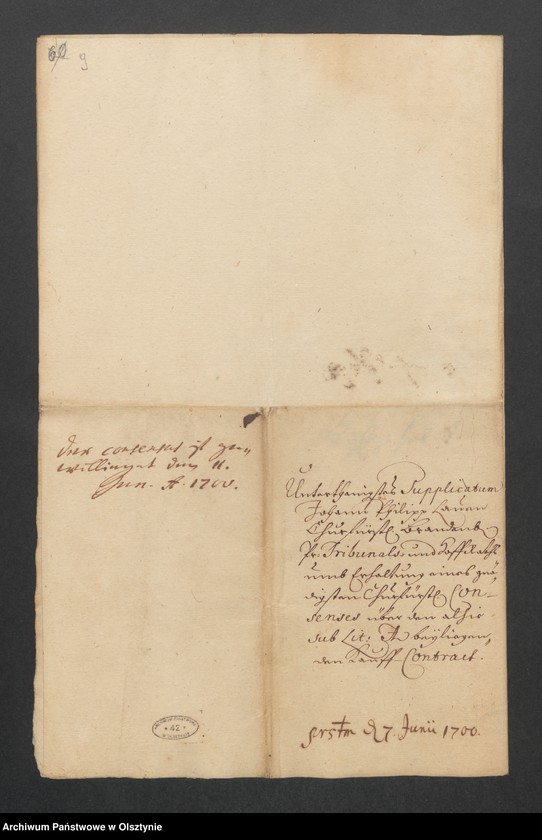 9
Der consensus ist ge„
williget den 11.
Jun. A. 1700.
Unterthänigstes Supplicatum
Johann Philipp
Churfürstl. Brandenb.
Pr: Tribunals und Hoffraths
umb Erhaltung eines gnä„
digsten Churfürstl. Con-
senses über den alhie
sub Lit: A beyliegen„
den Kauff Contract.
den 7. Junii 1700.
42
Archiwum Państwowe w Olsztynie